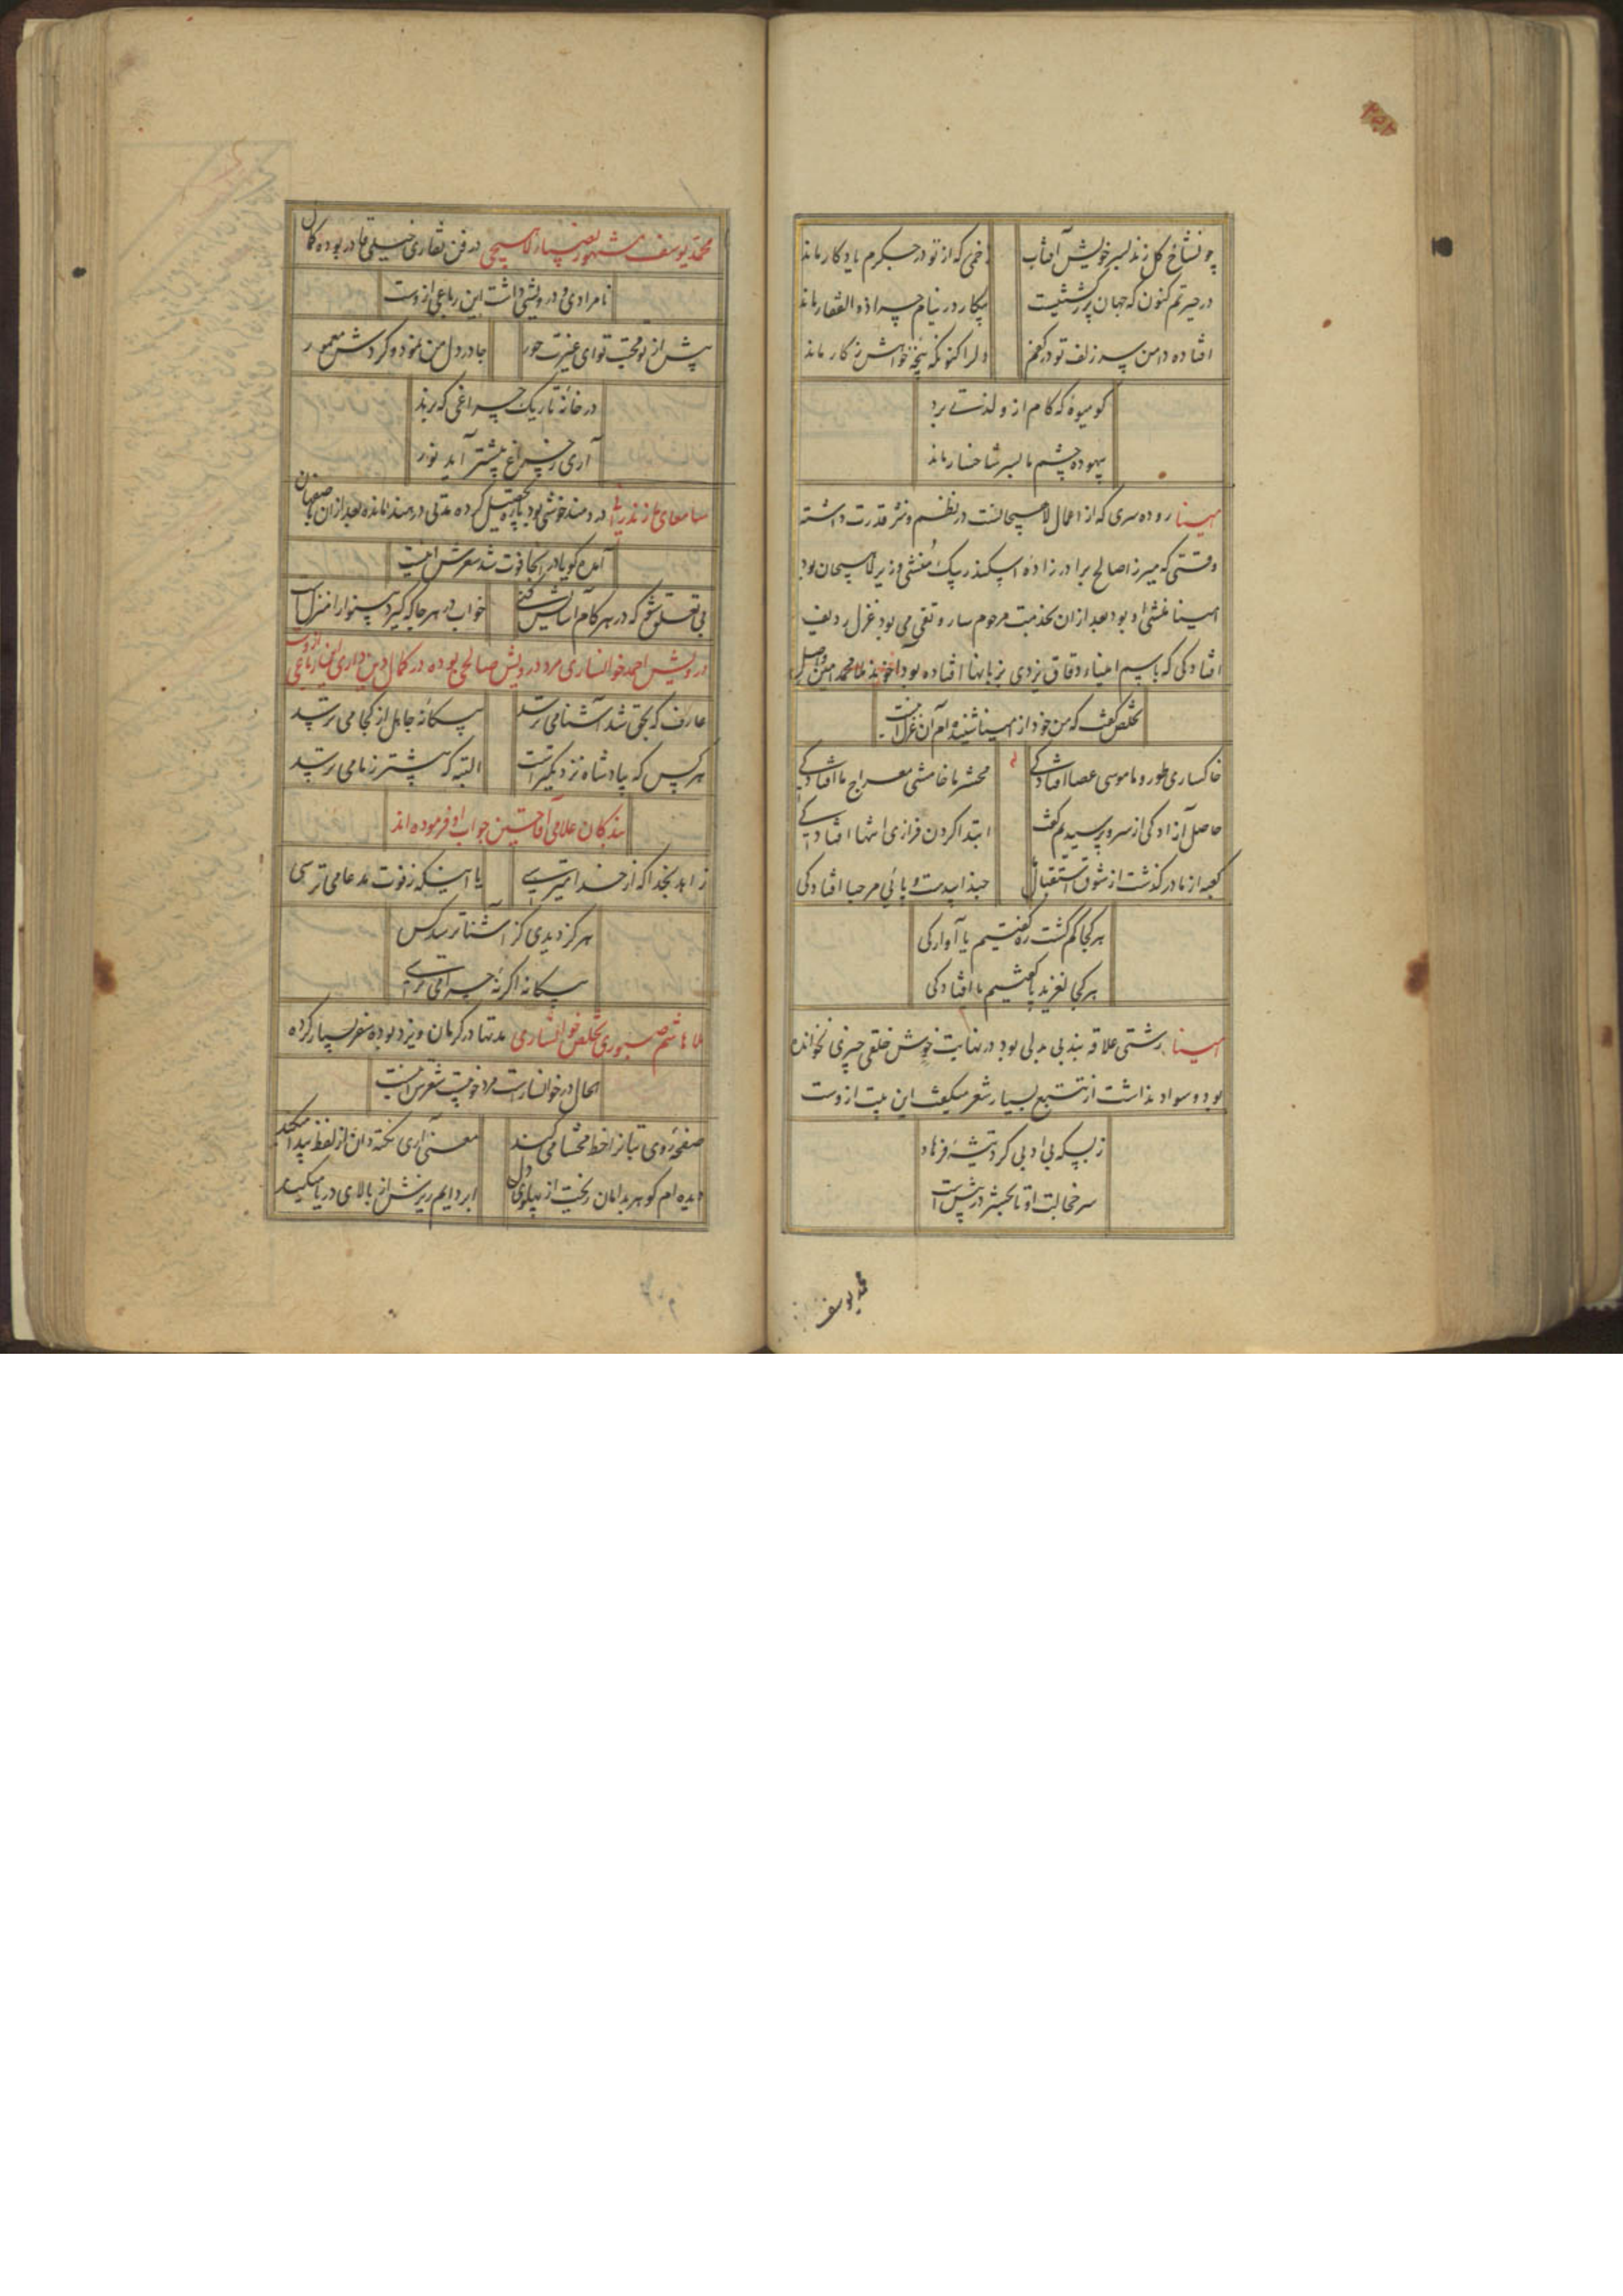 چو شاخ گل زند بسر خویش آفتاب زخمی که از تو در جگرم یادگار ماند
در حیرتم کنون که جهان پر ز کشتنیست بیکار در نیام چرا ذوالفقار ماند
افتاده دامن سر زلف تو در کفم دل را کنونکه پنجه خواهش ز کار ماند
کو میوهٔ که کام ازو لذتی برد
بیهوده چشم ما بسر شاخسار ماند
امینا روده سری که از اعمال لاهیجانست در نظم و نثر قدرت داشته
وقتی که میرزا صالح برادرزادهٔ اسکندر بیک منشی وزیر لاهیجان بود
امینا منشی او بود بعد از ان بخدمت مرحوم ساروتقی می بود غزل ردیف
افتادگی که باسم امیناء دقاق یزدی بزبانها افتاده بود آخوند ملا محمد امین واصل
تخلص گفت که من خود از امینا شنیده ام آن غزل اینست
خاکساری طور و ما موسی عصا افتادگی محشر ما خامشی معراج ما افتادگی
حاصل آزادگی از سرو پرسیدیم گفت ابتدا گردن فرازی انتها افتادگی
کعبه از ما در گذشت از شوق استقبال حبذا بیدست و پائی مرحبا افتادگی
هر کجا گم گشت ره گفتیم یا آوارگی
هر کجا لغزید پا گفتیم یا افتادگی
امینا رشتی علاقه بند بی بدلی بود در نهایت خوش خلقی چیزی نخوانده
بود و سواد نداشت از تتبع بسیار شعر میگفت این بیت ازوست
ز بسکه بی ادبی کرد تیشهٔ فرهاد
سر خجالت او تا بحشر در پیش است
محمد یوسف
محمد یوسف مشهور بصیاد لاهیجی در فن نقاری خیلی قادر بوده کمال
نامرادی و درویشی داشت این رباعی ازوست
پیش از تو محبت تو ای غیرت حور جا در دل من نمود و کردش معمور
در خانهٔ تاریک چراغی که برند
آری ز چراغ پیشتر آید نور
مازندرانی دردمند خوشی بود پاره تحصیل کرده مدتی در هند مانده بعد از ان باصفهان
آمده گویا در انجا فوت شد شعرش اینست
بی تعلق شو که در هر گام آسایش کنی خواب در هر جا که گیرد بینوا را منزل است
درویش احمد خوانساری مرد درویش صالحی بوده در کمال دین داری این رباعی ازوست
عارف که بحق شد آشنا می ترسد بیگانهٔ جاهل از کجا می ترسد
هر کس که بپادشاه نزدیکتر است البته که پیشتر ز ما می ترسد
بندگان علامی آقا حسین جواب او فرموده اند
زاهد بخدا که از خدا میترسی یا اینکه ز فوت مدعا می ترسی
هرگز دیدی کز آشنا ترسد کس
بیگانه اگر نهٔ چرا می ترسی
ملا هاشم صبوری تخلص خوانساری مدتها در کرمان و یزد بوده سفر بسیار کرده
الحال در خوانسارست مرد خوبیست شعرش اینست
صفحهٔ روی بتانرا خط محشا می کند معنی آری نکته دان از لفظ پیدا میکند
دیده ام گوهر بدامان ریخت از پهلوی دل ابر دایم ریزش از بالای دریا میکند